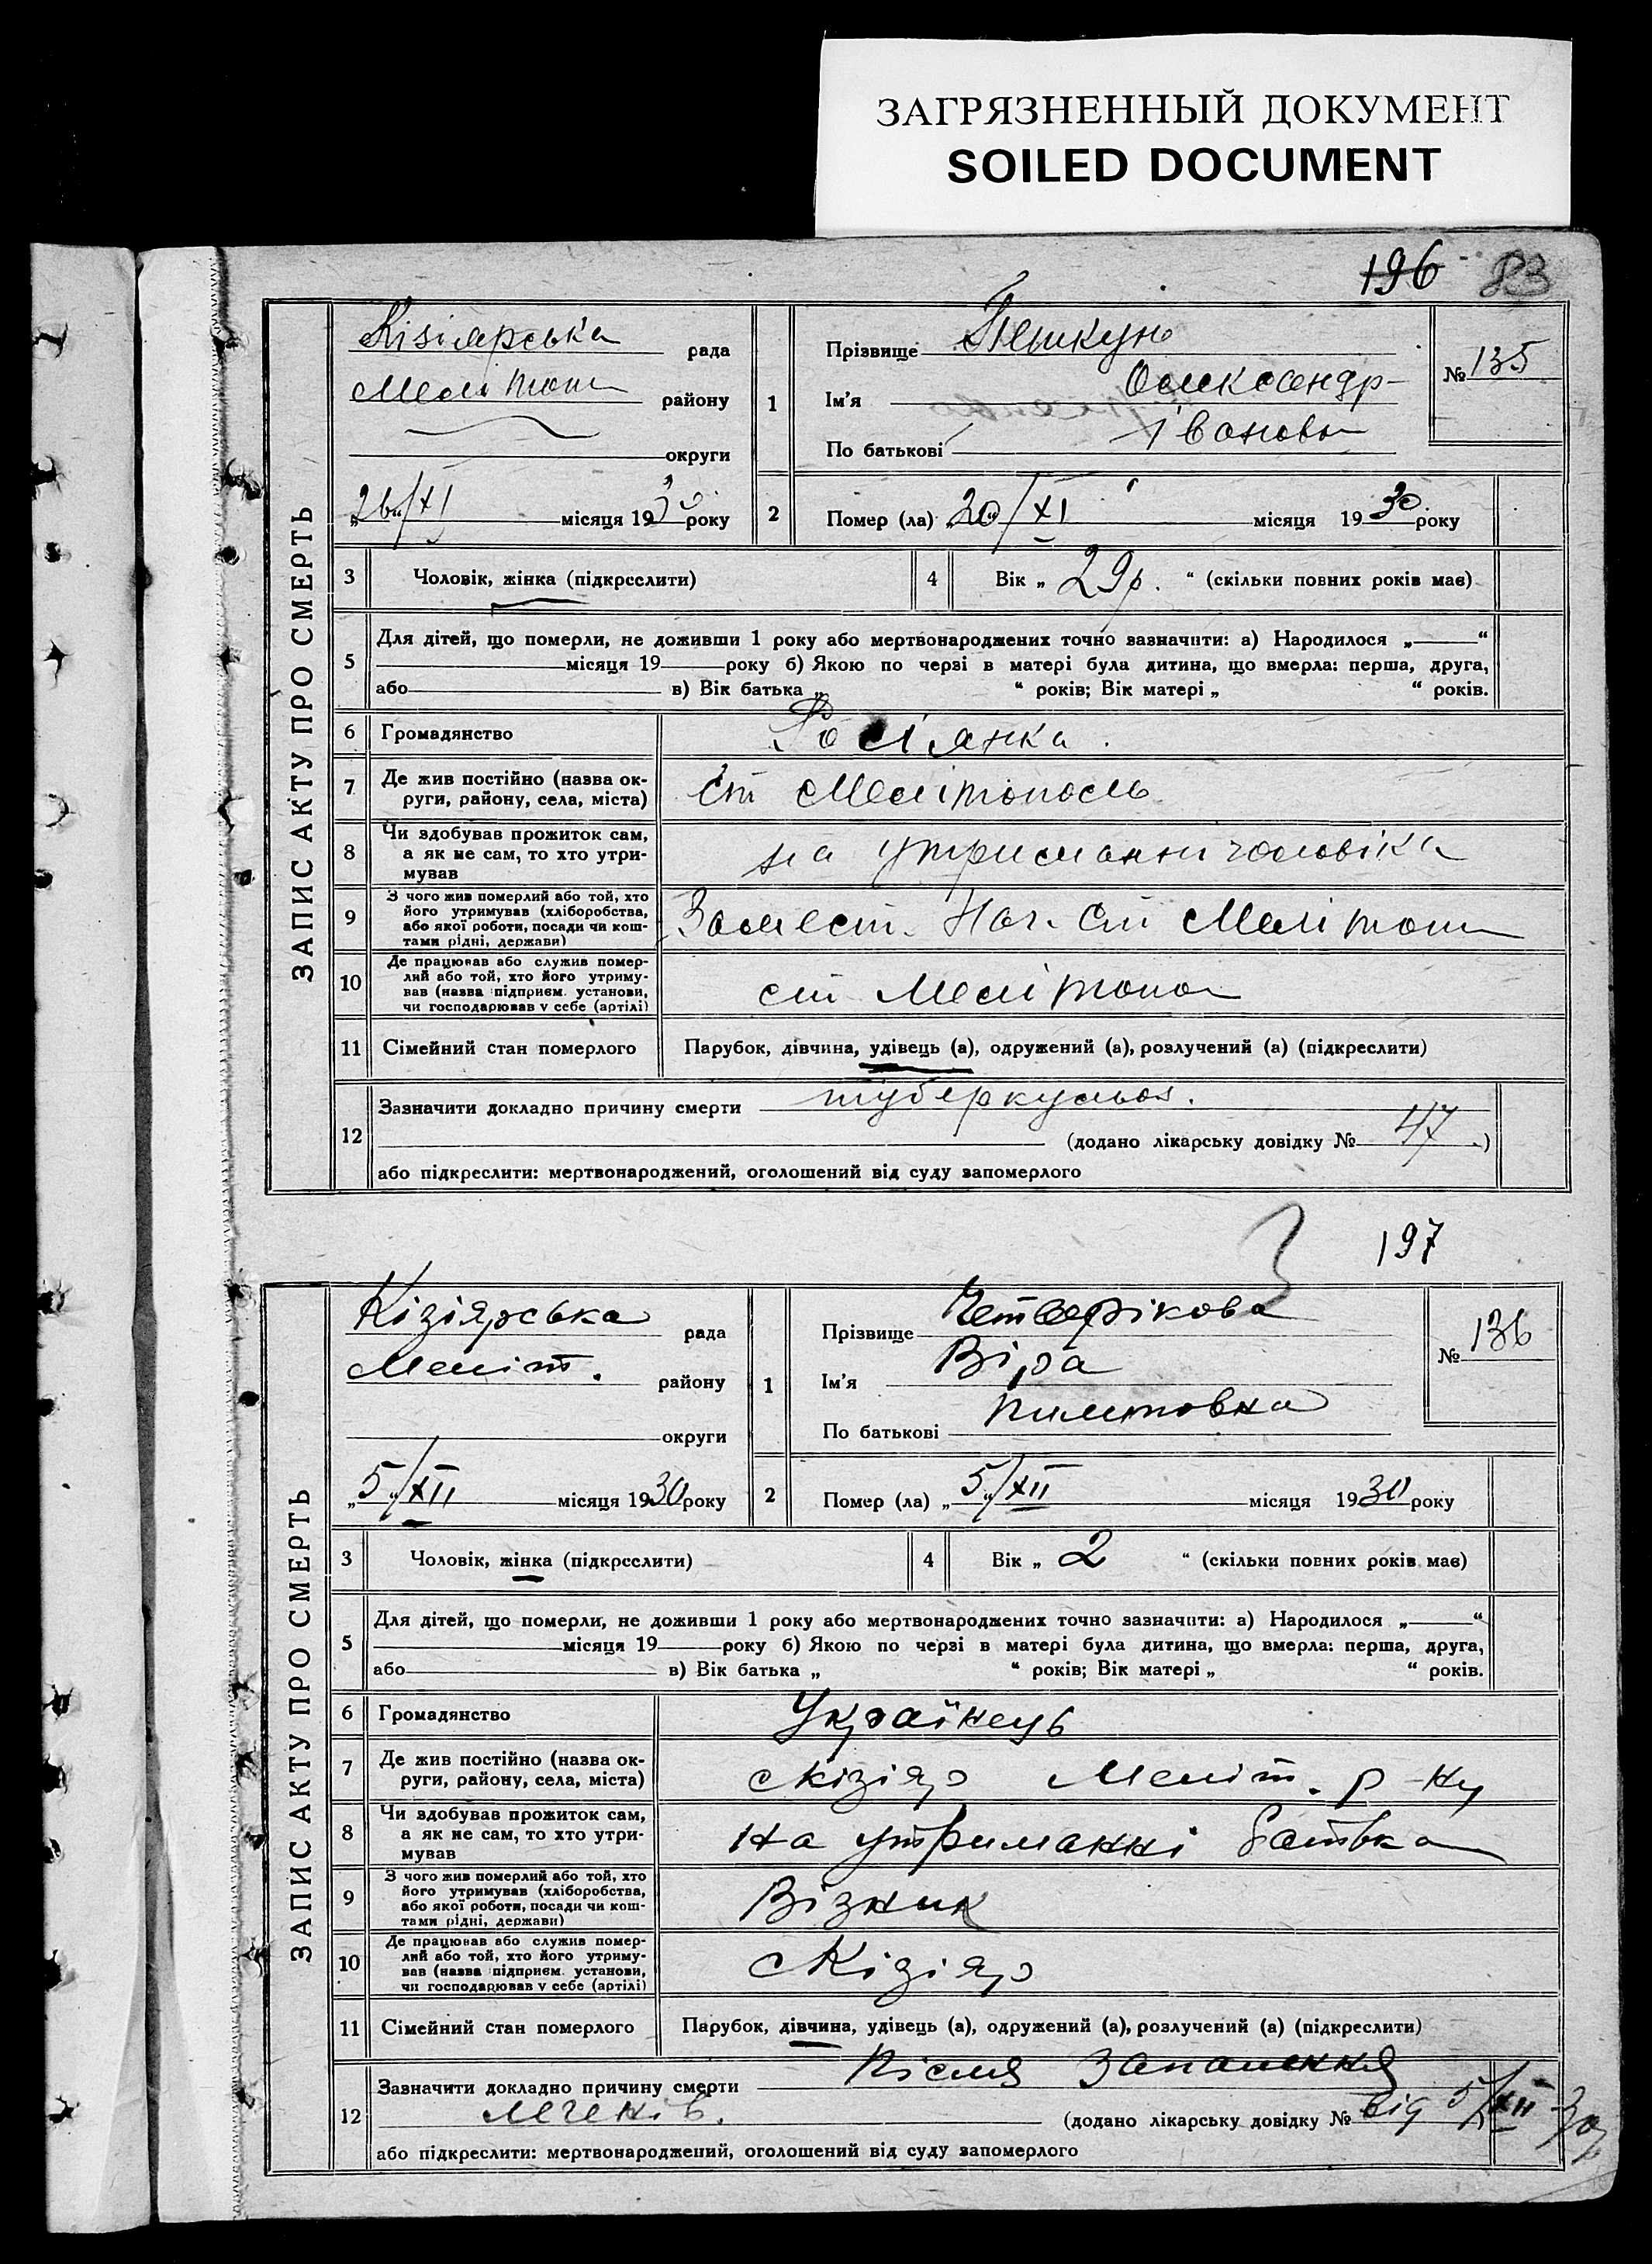 ЗАГРЯЗНЕННЫЙ ДОКУМЕНТ
SOILED DOCUMENT
196 83
ЗАПИС АКТУ ПРО СМЕРТЬ
Кізіярська рада
Мелітоп району
округи
„26“/XI місяця 1930 року
1 Прізвище Пешкунь
Ім'я Олександр-
По батькові Іванові
№ 135
2 Помер (ла) „20“/XI місяця 1930 року
3 Чоловік, жінка (підкреслити)
4 Вік „ 29р. “ (скільки повних років має)
5 Для дітей, що померли, не доживши 1 року або мертвонароджених точно зазначити: а) Народилося „ “
місяця 19 року б) Якою по черзі в матері була дитина, що вмерла: перша, друга,
або в) Вік батька „ “ років; Вік матері „ “ років.
6 Громадянство Росіянка.
7 Де жив постійно (назва ок-
руги, району, села, міста) ст Мелітополь
8 Чи здобував прожиток сам,
а як не сам, то хто утри-
мував на утриманні чоловіка
9 З чого жив померлий або той, хто
його утримував (хліборобства,
або якої роботи, посади чи кош-
тами рідні, держави) Замест. Нач. Ст Мелітоп
10 Де працював або служив помер-
лий або той, хто його утриму-
вав (назва підприєм. установи,
чи господарював у себе (артілі) ст Мелітопол
11 Сімейний стан померлого Парубок, дівчина, удівець (а), одружений (а), розлучений (а) (підкреслити)
12 Зазначити докладно причину смерти туберкульоз.
(додано лікарську довідку № 47 )
або підкреслити: мертвонароджений, оголошений від суду запомерлого
197
ЗАПИС АКТУ ПРО СМЕРТЬ
Кізіярська рада
Меліт. району
округи
„5“/XII місяця 1930 року
1 Прізвище Четверікова
Ім'я Віра
По батькові
№ 136
2 Помер (ла) „5“/XII місяця 1930 року
3 Чоловік, жінка (підкреслити)
4 Вік „ 2 “ (скільки повних років має)
5 Для дітей, що померли, не доживши 1 року або мертвонароджених точно зазначити: а) Народилося „ “
місяця 19 року б) Якою по черзі в матері була дитина, що вмерла: перша, друга,
або в) Вік батька „ “ років; Вік матері „ “ років.
6 Громадянство Українець
7 Де жив постійно (назва ок-
руги, району, села, міста) с Кізіяр Меліт. р-ну
8 Чи здобував прожиток сам,
а як не сам, то хто утри-
мував На утриманні батька
9 З чого жив померлий або той, хто
його утримував (хліборобства,
або якої роботи, посади чи кош-
тами рідні, держави) Візник
10 Де працював або служив помер-
лий або той, хто його утриму-
вав (назва підприєм. установи,
чи господарював у себе (артілі) с Кізіяр
11 Сімейний стан померлого Парубок, дівчина, удівець (а), одружений (а), розлучений (а) (підкреслити)
12 Зазначити докладно причину смерти Після Запалення
легенів.
(додано лікарську довідку № від 5/XII 30р )
або підкреслити: мертвонароджений, оголошений від суду запомерлого